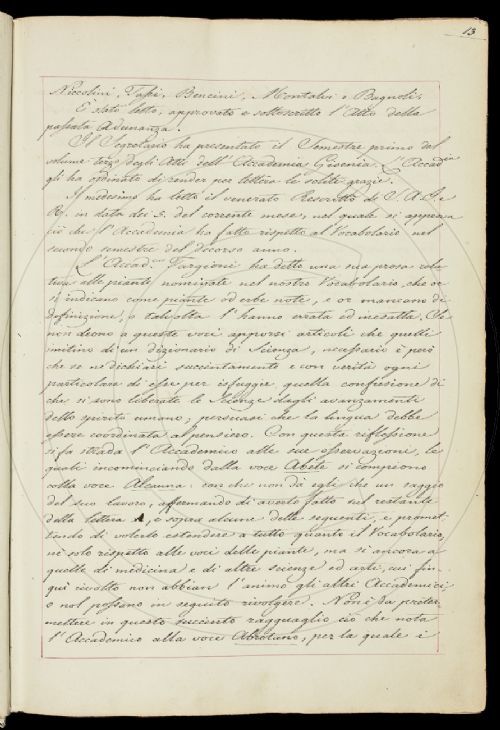 13
Niccolini, Tassi, Bencini, Montalvi e Bagnoli.
È stato letto, approvato e sottoscritto l'Atto della
passata Adunanza.
Il Segretario ha presentato il Semestre primo del
volume terzo degli Atti dell'Accademia Gioenia. L'Accadia
gli ha ordinato di render per lettera le solite grazie.
Il medesimo ha letto il venerato Rescritto di S. A. I. e
R., in data dei 5. del corrente mese, nel quale si approva
ciò che l'Accademia ha fatto rispetto al Vocabolario nel
secondo semestre del decorso anno.
L'Accad.co Targioni ha detto una sua prosa rela-
tiva alle piante nominate nel nostro Vocabolario, che or
si indicano come piante od erbe note, e or mancano di
definizione, o talvolta l'hanno errata ed inesatta. Che
non deono a queste voci apporsi articoli che quelli
imitino di un dizionario di Scienza, necessario è però
che se ne dichiari succintamente e con verità ogni
particolare di esse per isfuggir quella confusione di
che si sono liberate le Scienze dagli avanzamenti
dello spirito umano; persuasi che la lingua debbe
essere coordinata al pensiero. Con questa riflessione
si fa strada l'Accademico alle sue osservazione, le
quali incominciando dalla voce Abete si compiono
colla voce Alcanna: son che non dà egli che un saggio
del suo lavoro, affermando di averlo fatto nel restante
della lettera A, e sopra alcune delle seguenti, e promet-
tendo di volerlo estendere a tutto quanto il Vocabolario,
nè solo rispetto alle voci delle piante, ma sì ancora a
quelle di medicina e di altre scienze ed arti, cui fin-
qui rivolto non abbian l'animo gli altri Accademici
o nol possano in seguito rivolgere. Non è da preter-
mettere in questo succinto ragguaglio ciò che nota
l'Accademico alla voce Abrotano, per la quale i